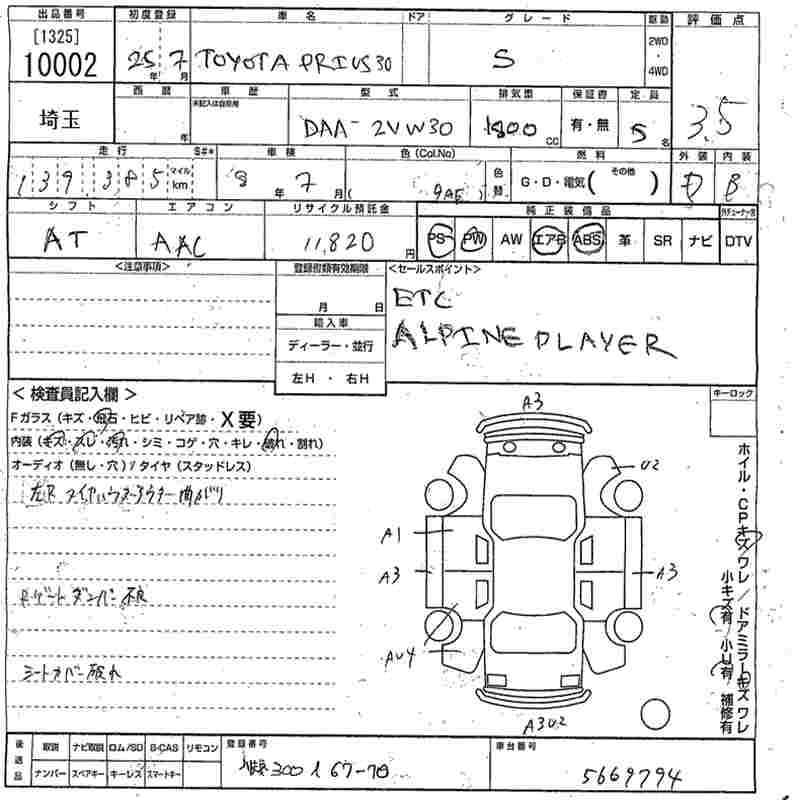 出品番号 初度登録 車名 ドア グレード 駆動 評価点
[1325]
10002 25年 7月 TOYOTA PRIUS30 S 2WD・4WD 3.5
西暦 車歴 型式 排気量 保証書 定員
未記入は自家用
埼玉 年 DAA-2VW30 1800 cc 有・無 5名
走行 S#* 車検 色(Col.No) 燃料 外装 内装
139,385 マイル km 8年 7月( 9AE ) 色替 G・D・電気( その他 ) D B
シフト エアコン リサイクル預託金 純正装備品
AT AAC 11,820円 PS PW AW エアB ABS 革 SR ナビ DTV
<注意事項> 登録書類有効期限 <セールスポイント>
月 日 ETC
輸入車 ALPINE PLAYER
ディーラー・並行
左H・右H
<検査員記入欄> キーロック
Fガラス(キズ・飛石・ヒビ・リペア跡・X要)
内装(キズ・スレ・汚れ・シミ・コゲ・穴・キレ・破れ・割れ)
オーディオ(無し・穴)/タイヤ(スタッドレス)
Rゲートダンパー不良
シートカバー破れ
A3
U2
A1
A3 A3
AU4
A3U2
ホイル・CPキズワレ/ドアミラーキズワレ
小キズ有/小U有/補修有
後送品 取説 ナビ取説 ロム/SD B-CAS リモコン 登録番号 車台番号
ナンバー スペアキー キーレス スマートキー 300 67-70 5669794